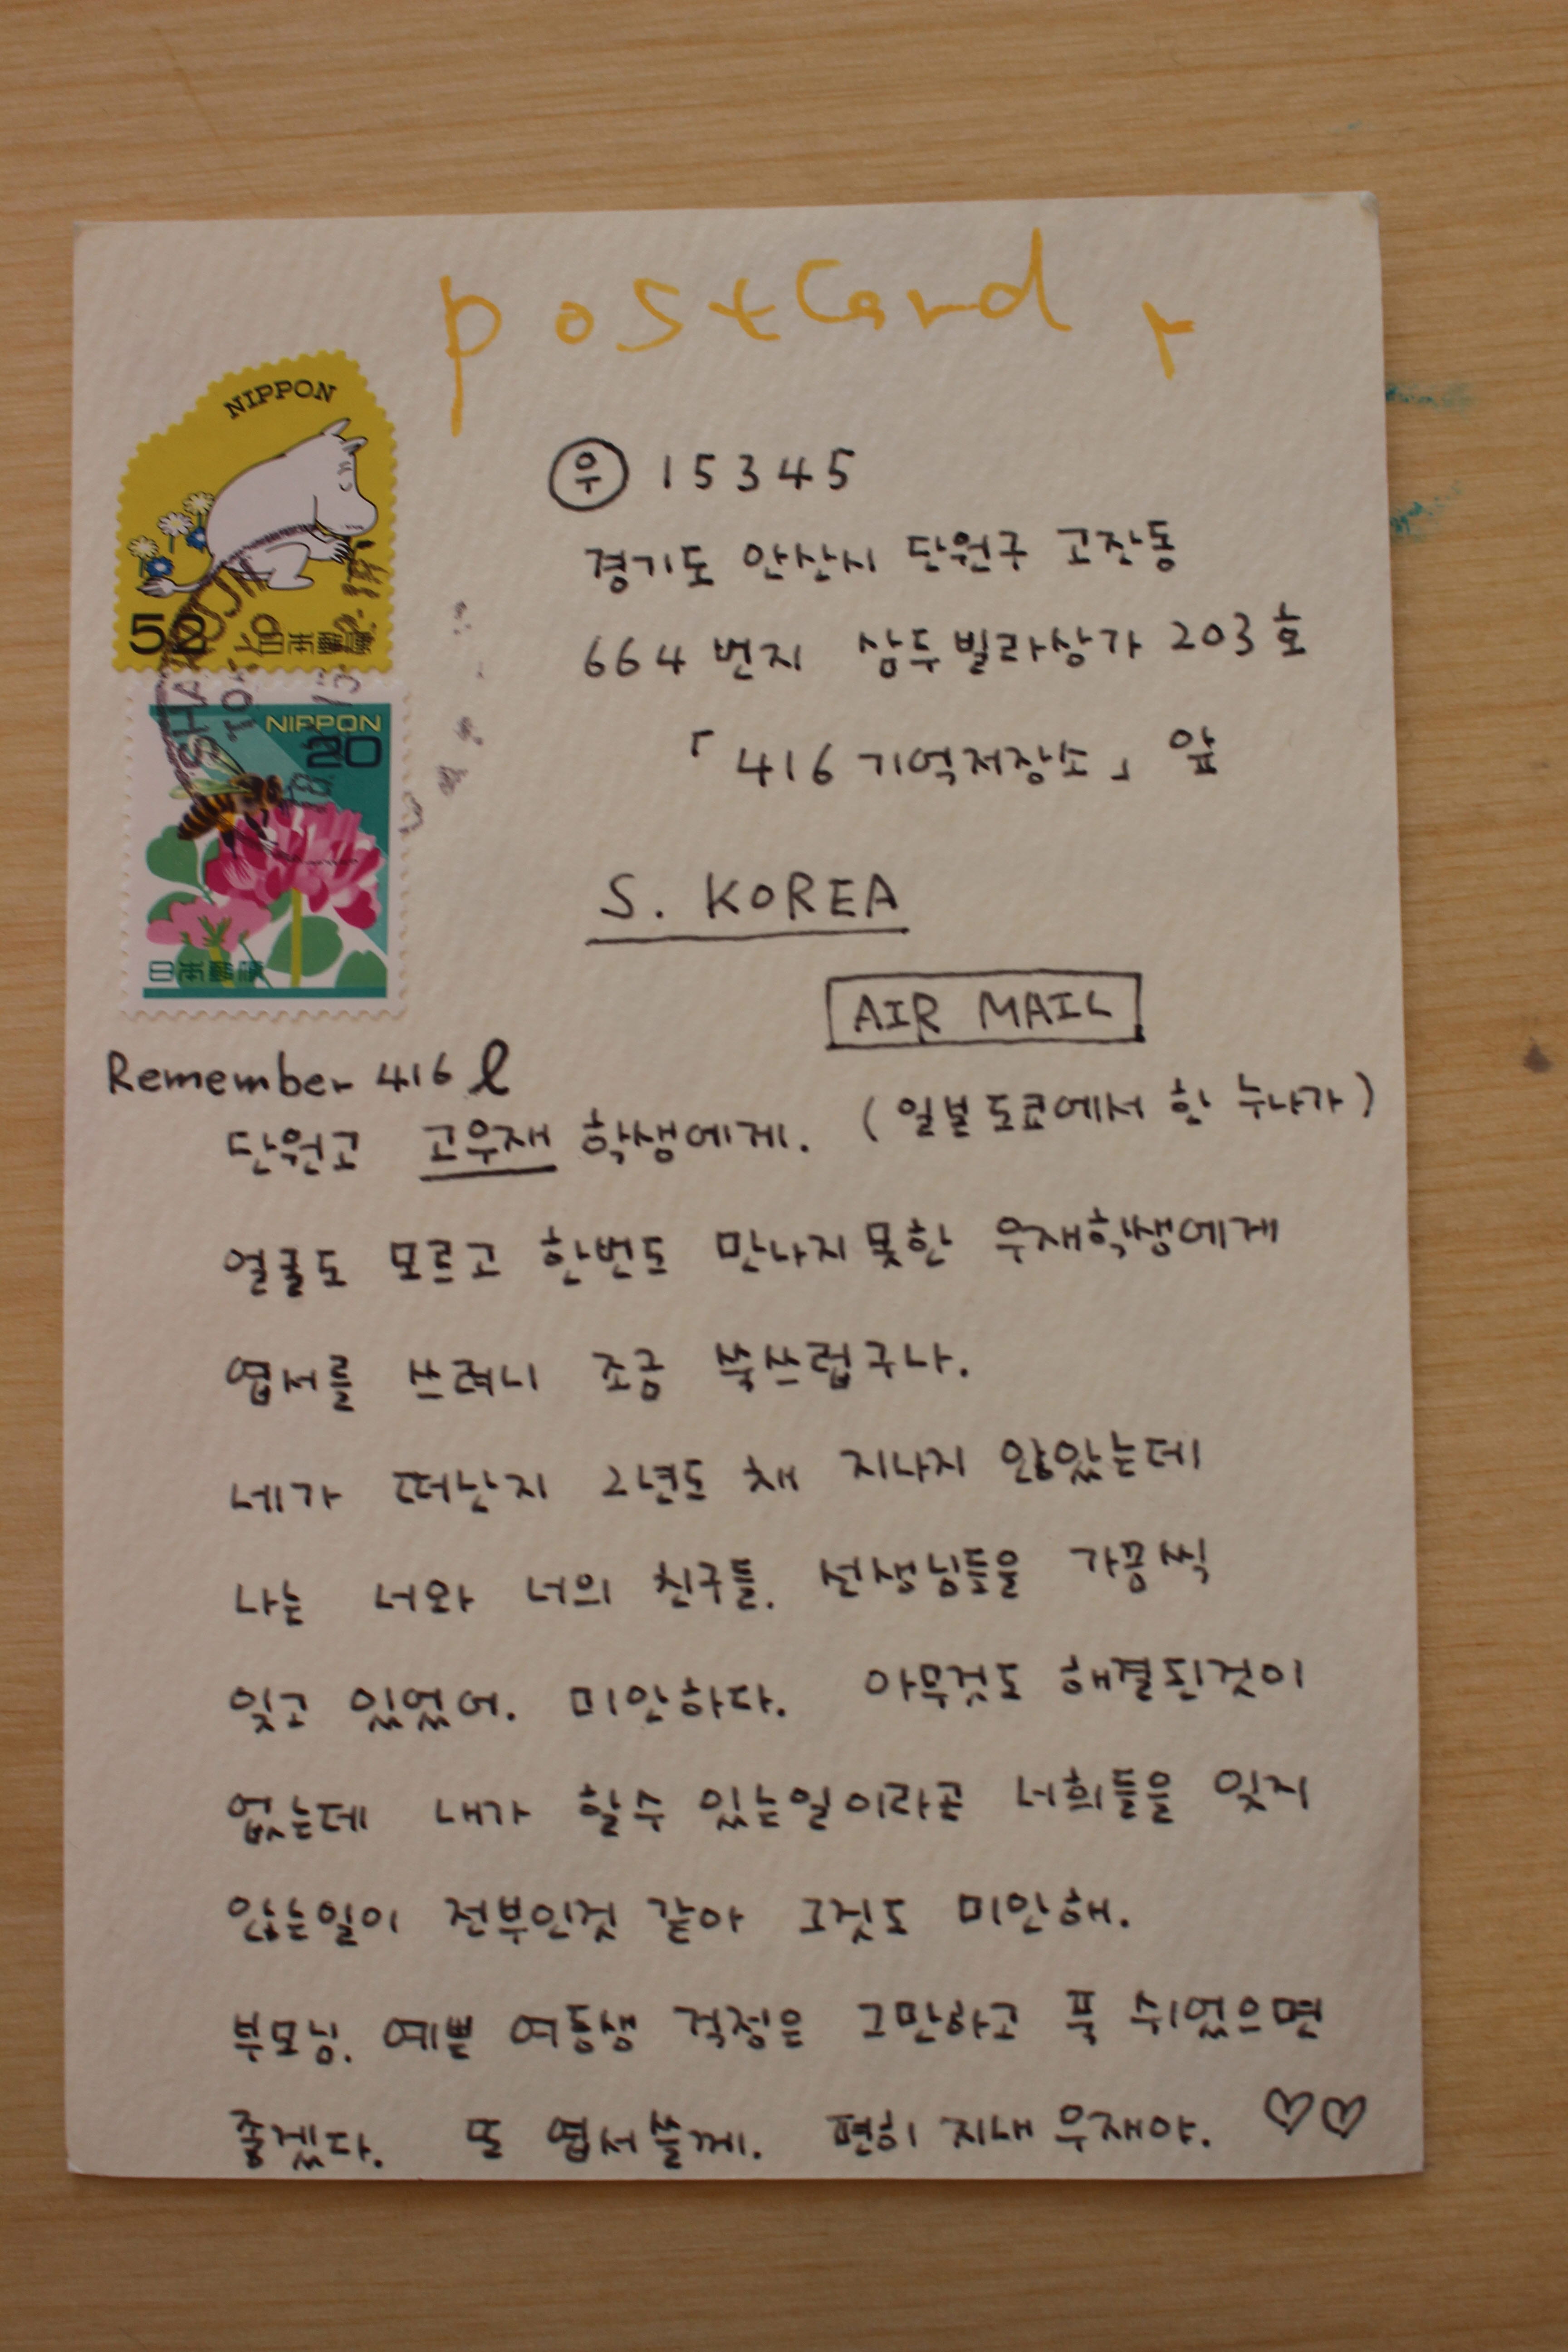 postcard
NIPPON
52
日本郵便
NIPPON
20
日本郵便
우 15345
경기도 안산시 단원구 고잔동
664번지 삼두빌라상가 203호
「416기억저장소」 앞
S. KOREA
AIR MAIL
Remember 416
(일본 도쿄에서 한 누나가)
단원고 고우재 학생에게.
얼굴도 모르고 한번도 만나지못한 우재학생에게
엽서를 쓰려니 조금 쑥쓰럽구나.
네가 떠난지 2년도 채 지나지 않았는데
나는 너와 너의 친구들. 선생님들을 가끔씩
잊고 있었어. 미안하다. 아무것도 해결된것이
없는데 내가 할수 있는일이라곤 너희들을 잊지
않는일이 전부인것 같아 그것도 미안해.
부모님. 예쁜 여동생 걱정은 그만하고 푹 쉬었으면
좋겠다. 또 엽서쓸께. 편히 지내 우재야.